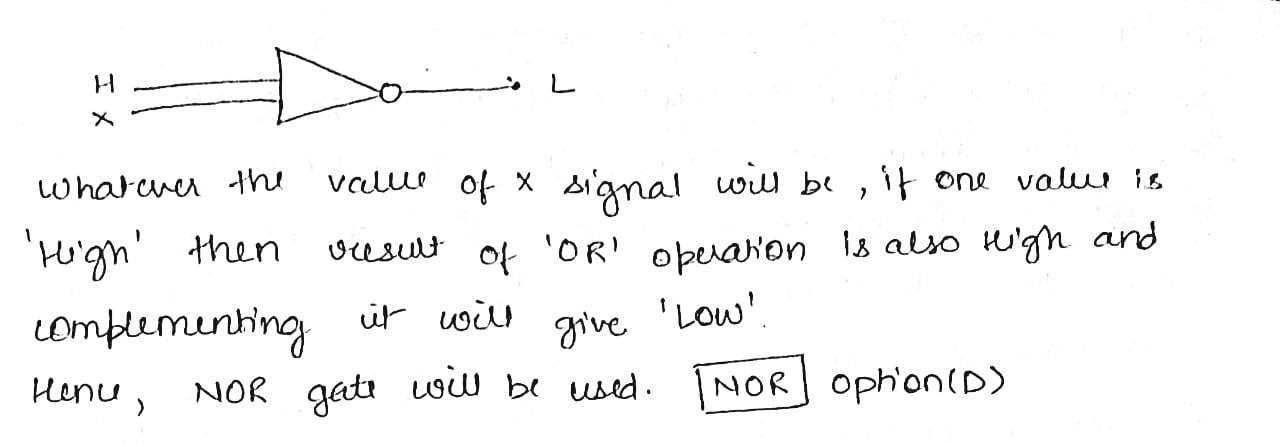 H
X
L
whatever the value of x signal will be, if one value is
'High' then result of 'OR' operation is also High and
complementing it will give 'Low'.
Hence, NOR gate will be used. NOR option(D)